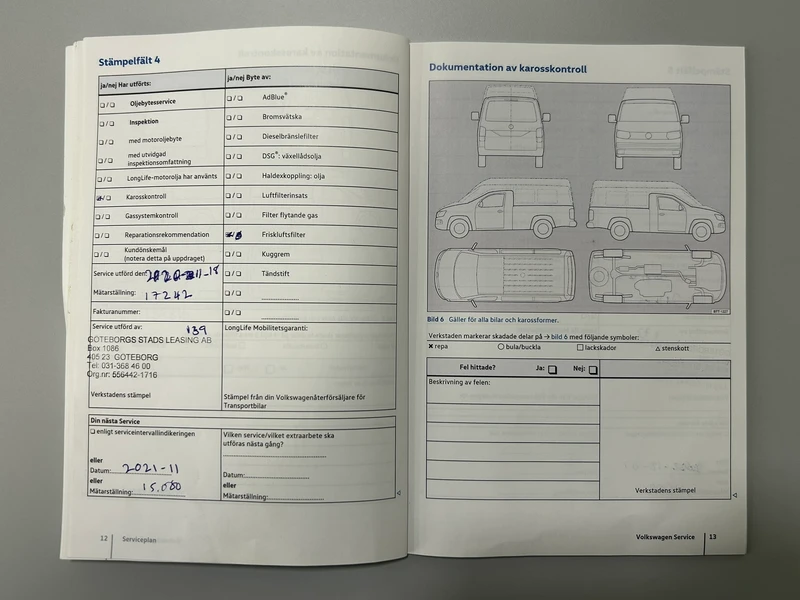 Stämpelfält 4
ja/nej Har utförts:
Oljebytesservice
Inspektion
med motoroljebyte
med utvidgad
inspektionsomfattning
LongLife-motorolja har använts
Karosskontroll
Gassystemkontroll
Reparationsrekommendation
Kundönskemål
(notera detta på uppdraget)
Service utförd den:
Mätarställning: 17242
Fakturanummer:
Service utförd av: 139
GÖTEBORGS STADS LEASING AB
Box 1086
405 23 GÖTEBORG
Tel: 031-368 46 00
Org.nr: 556442-1716
Verkstadens stämpel
ja/nej Byte av:
AdBlue®
Bromsvätska
Dieselbränslefilter
DSG®: växellådsolja
Haldexkoppling: olja
Luftfilterinsats
Filter flytande gas
Friskluftsfilter
Kuggrem
Tändstift
LongLife Mobilitetsgaranti:
Stämpel från din Volkswagenåterförsäljare för
Transportbilar
Din nästa Service
enligt serviceintervallindikeringen
eller
Datum: 2021-11
eller
Mätarställning: 15.000
Vilken service/vilket extraarbete ska
utföras nästa gång?
Datum:
eller
Mätarställning:
12 Serviceplan
Dokumentation av karosskontroll
Bild 6 Gäller för alla bilar och karossformer.
Verkstaden markerar skadade delar på → bild 6 med följande symboler:
× repa ○ bula/buckla □ lackskador △ stenskott
Fel hittade? Ja: Nej:
Beskrivning av felen:
Verkstadens stämpel
Volkswagen Service 13